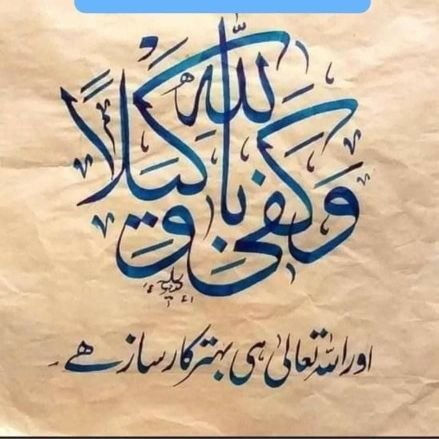 وَكَفَىٰ بِاللّٰهِ وَكِيلًا
اور اللہ تعالیٰ ہی بہتر کارساز ھے۔